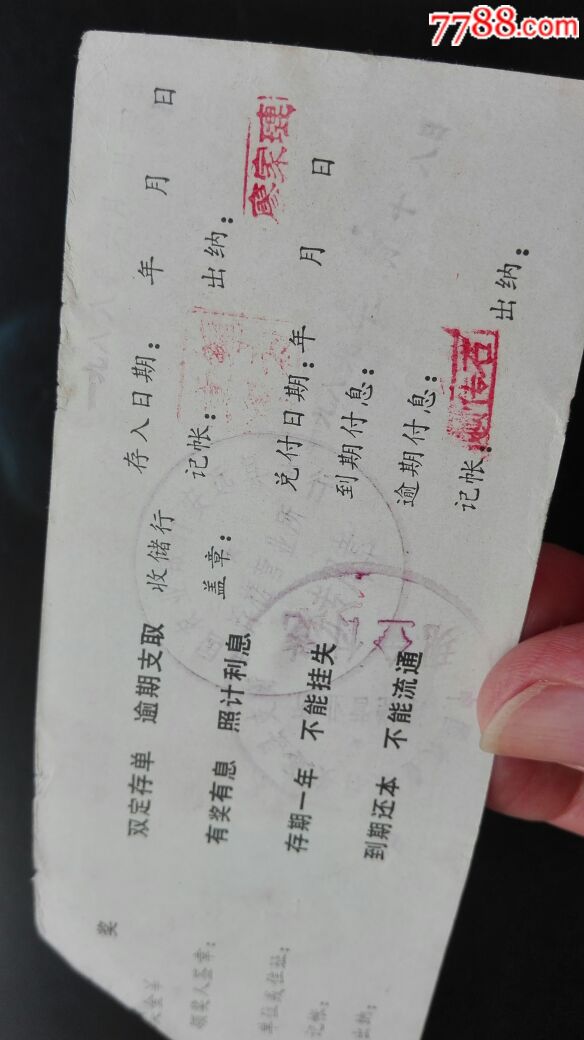 7788.com
双定存单 逾期支取
有奖有息 照计利息
存期一年 不能挂失
到期还本 不能流通
收储行
盖章：
存入日期： 年 月 日
记帐： 出纳：
廖家琏
兑付日期： 年 月 日
到期付息：
逾期付息：
记帐： 出纳：
奖
领奖人签章：
单位或住址：
记帐：
出纳：